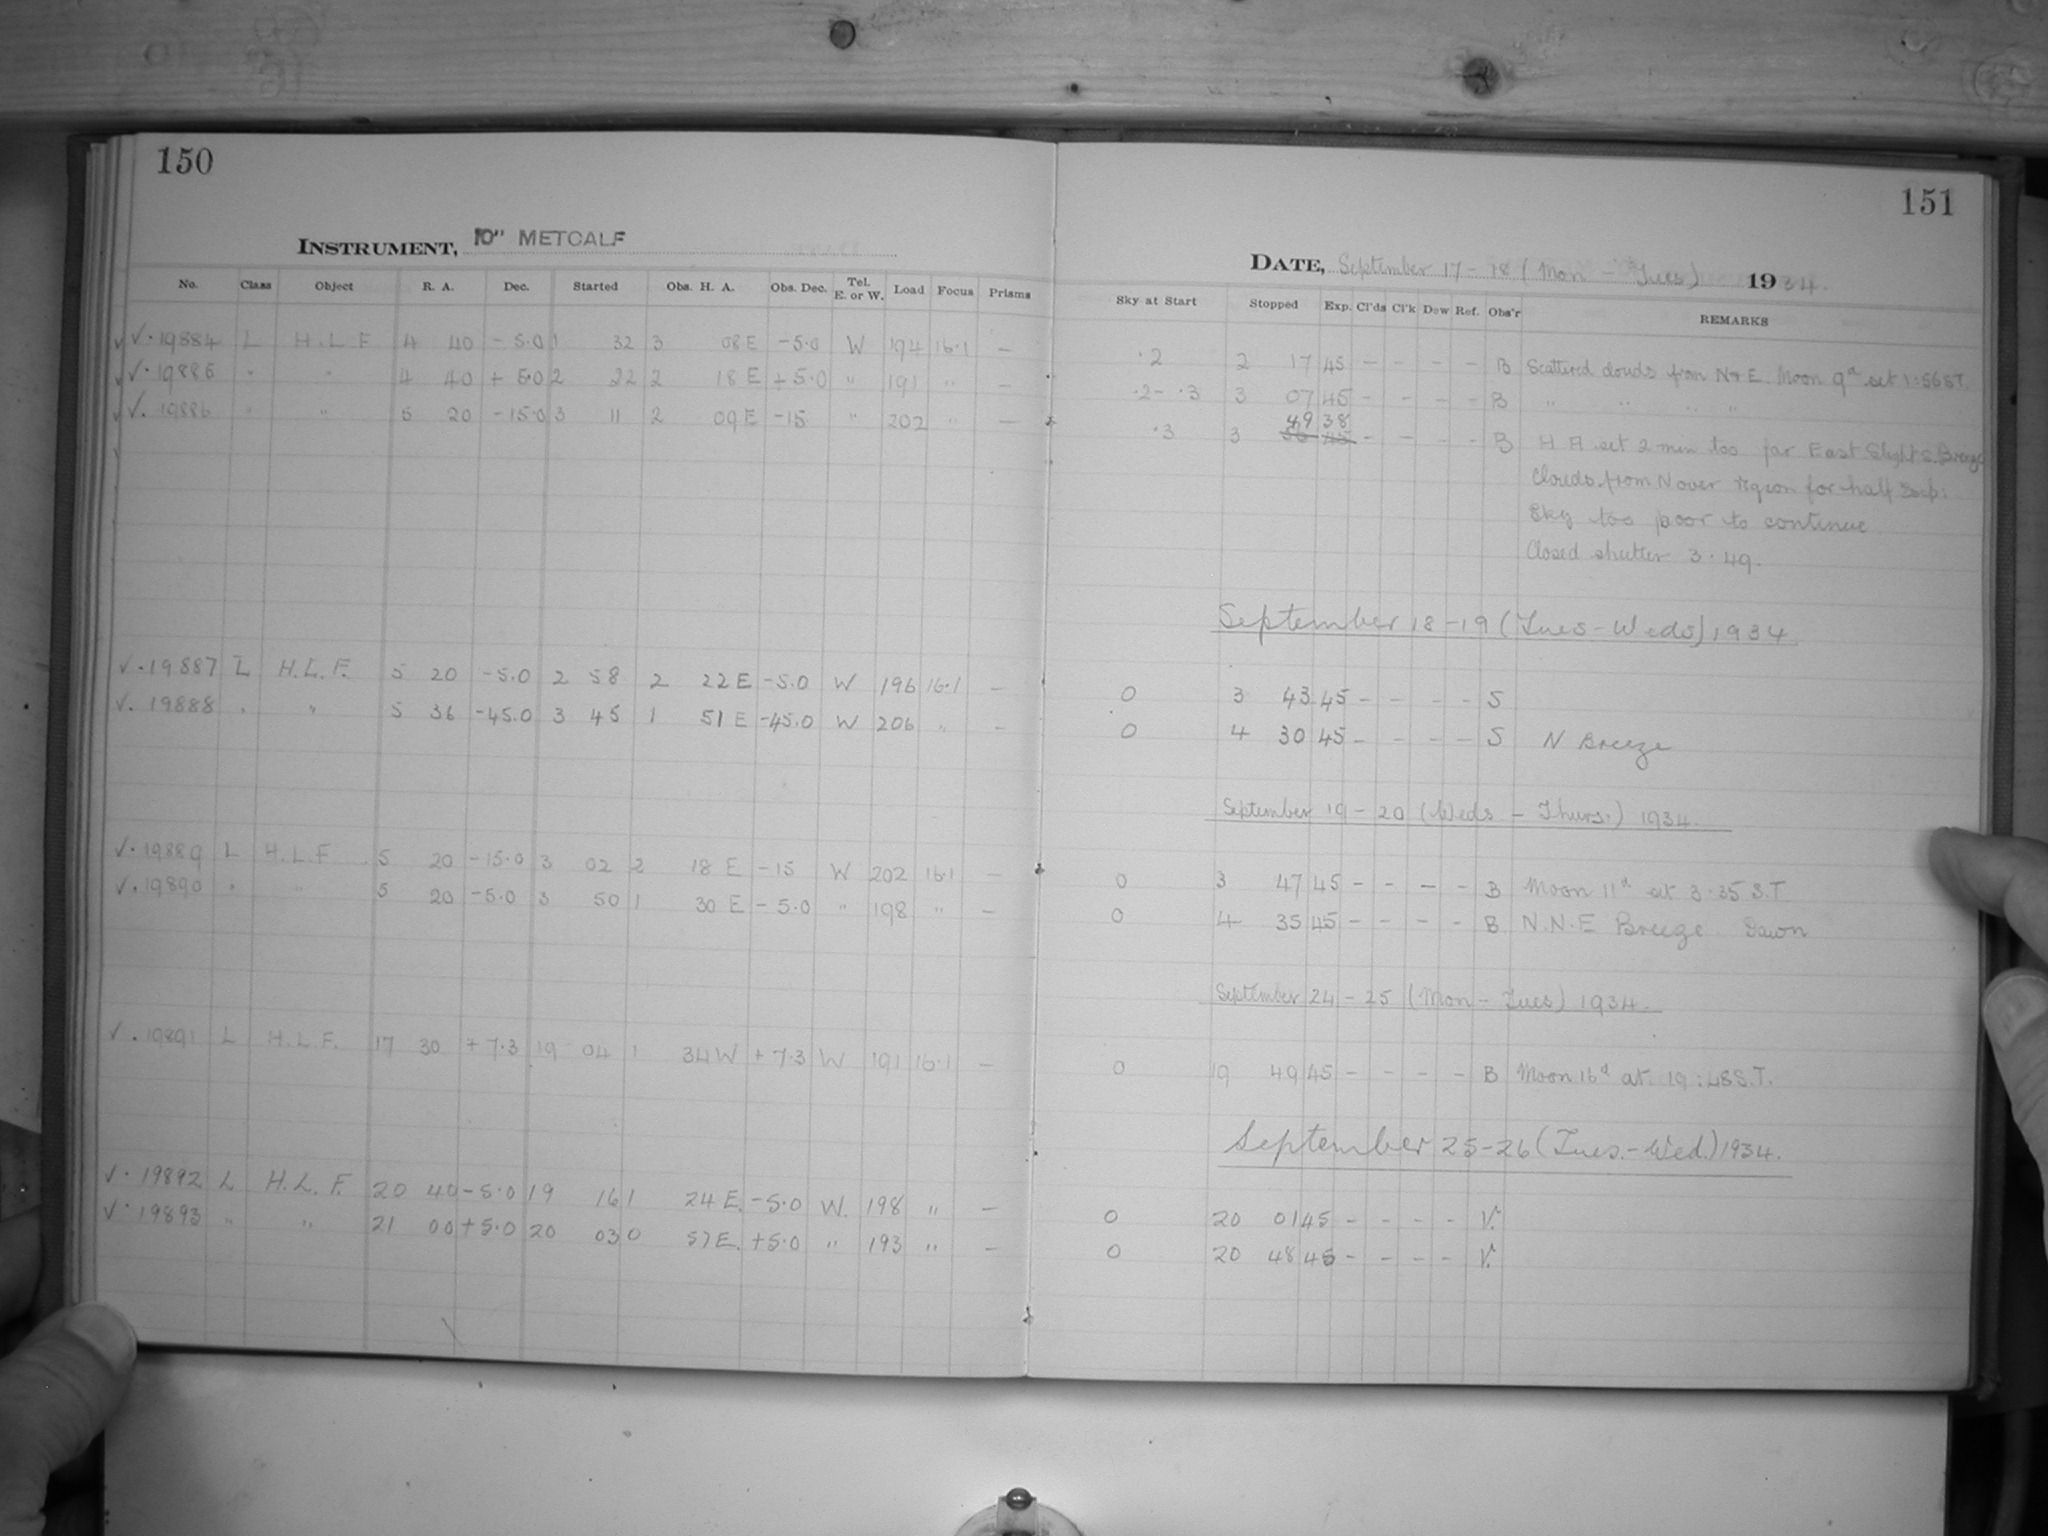 150
INSTRUMENT, 10" METCALF
No. Class Object R. A. Dec. Started Obs. H. A. Obs. Dec. Tel. E. or W. Load Focus Prisms
✓. 19884 L H.L.F. 4 40 -5.0 1 32 3 08 E -5.0 W 194 16.1 —
✓. 19885 " " 4 40 +5.0 2 22 2 18 E +5.0 " 191 " —
✓. 19886 " " 5 20 -15.0 3 11 2 09 E -15 " 202 " —
✓. 19887 L H.L.F. 5 20 -5.0 2 58 2 22 E -5.0 W 196 16.1 —
✓. 19888 " " 5 36 -45.0 3 45 1 51 E -45.0 W 206 " —
✓. 19889 L H.L.F 5 20 -15.0 3 02 2 18 E -15 W 202 16.1 —
✓. 19890 " " 5 20 -5.0 3 50 1 30 E -5.0 " 198 " —
✓. 19891 L H.L.F. 17 30 +7.3 19 04 1 34 W +7.3 W 191 16.1 —
✓. 19892 L H.L.F. 20 40 -5.0 19 16 1 24 E. -5.0 W. 198 " —
✓. 19893 " " 21 00 +5.0 20 03 0 57 E. +5.0 " 193 " —
151
DATE, September 17-18 (Mon - Tues) 1934.
Sky at Start Stopped Exp. Cl'ds Cl'k Dew Ref. Obs'r REMARKS
.2 2 17 45 - - - - B Scattered clouds from N & E. Moon 9d set 1:56 S.T.
.2- .3 3 07 45 - - - - B " " " "
49 38
.3 3 56 45 - - - - B H A set 2 min too far East Slight S. Breeze
Clouds from N over region for half Exp:
Sky too poor to continue
Closed shutter 3.49.
September 18-19 (Tues-Weds) 1934
0 3 43 45 - - - - S
0 4 30 45 - - - - S N Breeze
September 19-20 (Weds - Thurs.) 1934.
0 3 47 45 - - - - B Moon 11d set 3.35 S.T.
0 4 35 45 - - - - B N.N.E Breeze Dawn
September 24-25 (Mon-Tues) 1934.
0 19 49 45 - - - - B Moon 16d at 19:48 S.T.
September 25-26 (Tues.-Wed.) 1934.
0 20 01 45 - - - - V.
0 20 48 45 - - - - V.